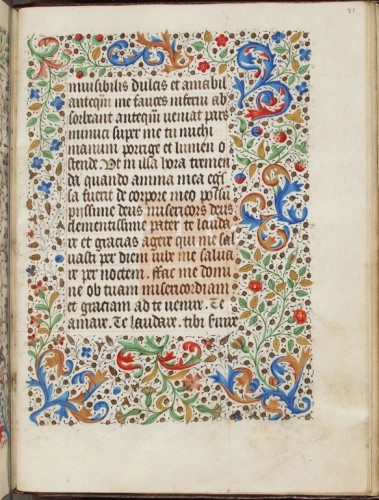 81
muisibilis dulcis et amabil
antequā me fauces inferni ab
sorbeant antequā ueniat pars
inimici super me tu michi
manum porrige et lumen o
stende. Vt in illa hora tremen
da quando anima mea egs
sa fuerit de corpore meo possū
pyssime deus misericors deus
clementissime pater te lauda
re et gracias agere qui me sal
uasti per diem iube me salua
re per noctem. ffac me domi
ne ob tuam misericordiam
et graciam ad te uenire. Te
amare. Te laudare. tibi